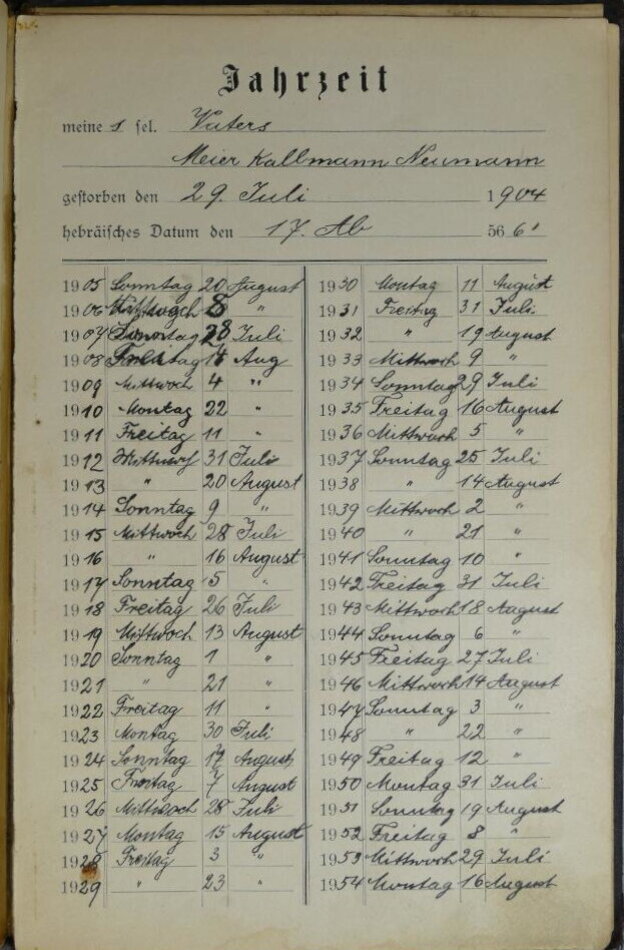 Jahrzeit
meines sel. Vaters
Meier Kallmann Neumann
gestorben den 29. Juli 1904
hebräisches Datum den 17. Ab 566
1905 Sonntag 20 August
1906 Mittwoch 8 "
1907 28 Juli
1908 14 Aug
1909 Mittwoch 4 "
1910 Montag 22 "
1911 Freitag 11 "
1912 Mittwoch 31 Juli
1913 " 20 August
1914 Sonntag 9 "
1915 Mittwoch 28 Juli
1916 " 16 August
1917 Sonntag 5 "
1918 Freitag 26 Juli
1919 Mittwoch 13 August
1920 Sonntag 1 "
1921 " 21 "
1922 Freitag 11 "
1923 Montag 30 Juli
1924 Sonntag 17 August
1925 Freitag 7 August
1926 Mittwoch 28 Juli
1927 Montag 15 August
1928 Freitag 3 "
1929 " 23 "
1930 Montag 11 August
1931 Freitag 31 Juli
1932 " 19 August
1933 Mittwoch 9 "
1934 Sonntag 29 Juli
1935 Freitag 16 August
1936 Mittwoch 5 "
1937 Sonntag 25 Juli
1938 " 14 August
1939 Mittwoch 2 "
1940 " 21 "
1941 Sonntag 10 "
1942 Freitag 31 Juli
1943 Mittwoch 18 August
1944 Sonntag 6 "
1945 Freitag 27 Juli
1946 Mittwoch 14 August
1947 Sonntag 3 "
1948 " 22 "
1949 Freitag 12 "
1950 Montag 31 Juli
1951 Sonntag 19 August
1952 Freitag 8 "
1953 Mittwoch 29 Juli
1954 Montag 16 August